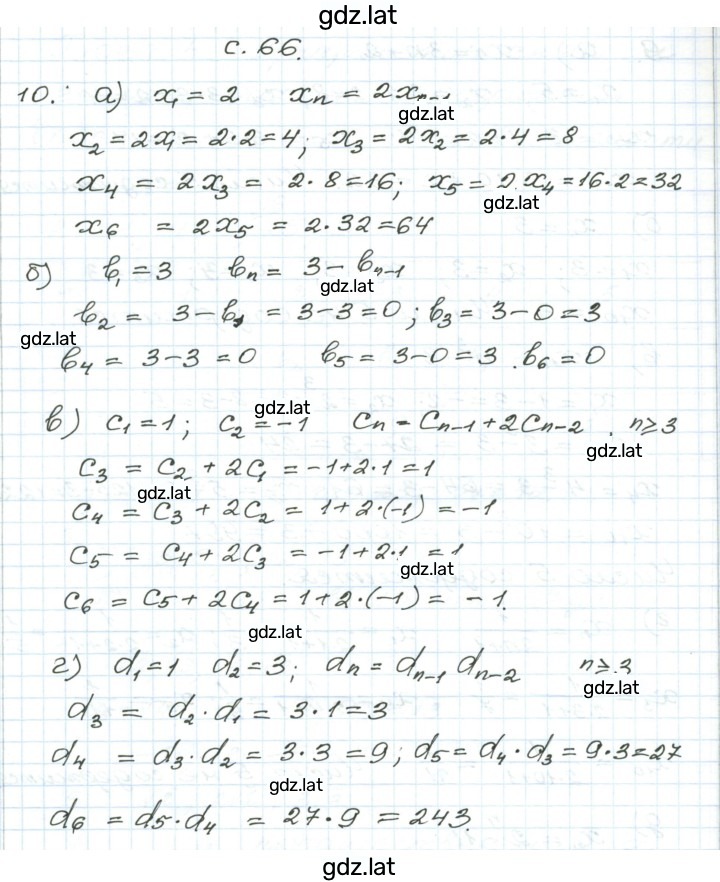 gdz.lat
с. 66.
10. а) x₁ = 2 xₙ = 2xₙ₋₁
gdz.lat
x₂ = 2x₁ = 2·2 = 4; x₃ = 2x₂ = 2·4 = 8
x₄ = 2x₃ = 2·8 = 16; x₅ = 2·x₄ = 16·2 = 32
gdz.lat
x₆ = 2x₅ = 2·32 = 64
б) b₁ = 3 bₙ = 3 − bₙ₋₁
gdz.lat
b₂ = 3 − b₁ = 3 − 3 = 0; b₃ = 3 − 0 = 3
gdz.lat
b₄ = 3 − 3 = 0 b₅ = 3 − 0 = 3. b₆ = 0
gdz.lat
в) c₁ = 1; c₂ = −1 cₙ = cₙ₋₁ + 2cₙ₋₂. n ≥ 3
gdz.lat
c₃ = c₂ + 2c₁ = −1 + 2·1 = 1
gdz.lat
c₄ = c₃ + 2c₂ = 1 + 2·(−1) = −1
c₅ = c₄ + 2c₃ = −1 + 2·1 = 1
gdz.lat
c₆ = c₅ + 2c₄ = 1 + 2·(−1) = −1.
gdz.lat
г) d₁ = 1 d₂ = 3; dₙ = dₙ₋₁ dₙ₋₂ n ≥ 3
gdz.lat
d₃ = d₂·d₁ = 3·1 = 3
d₄ = d₃·d₂ = 3·3 = 9; d₅ = d₄·d₃ = 9·3 = 27
gdz.lat
d₆ = d₅·d₄ = 27·9 = 243.
gdz.lat